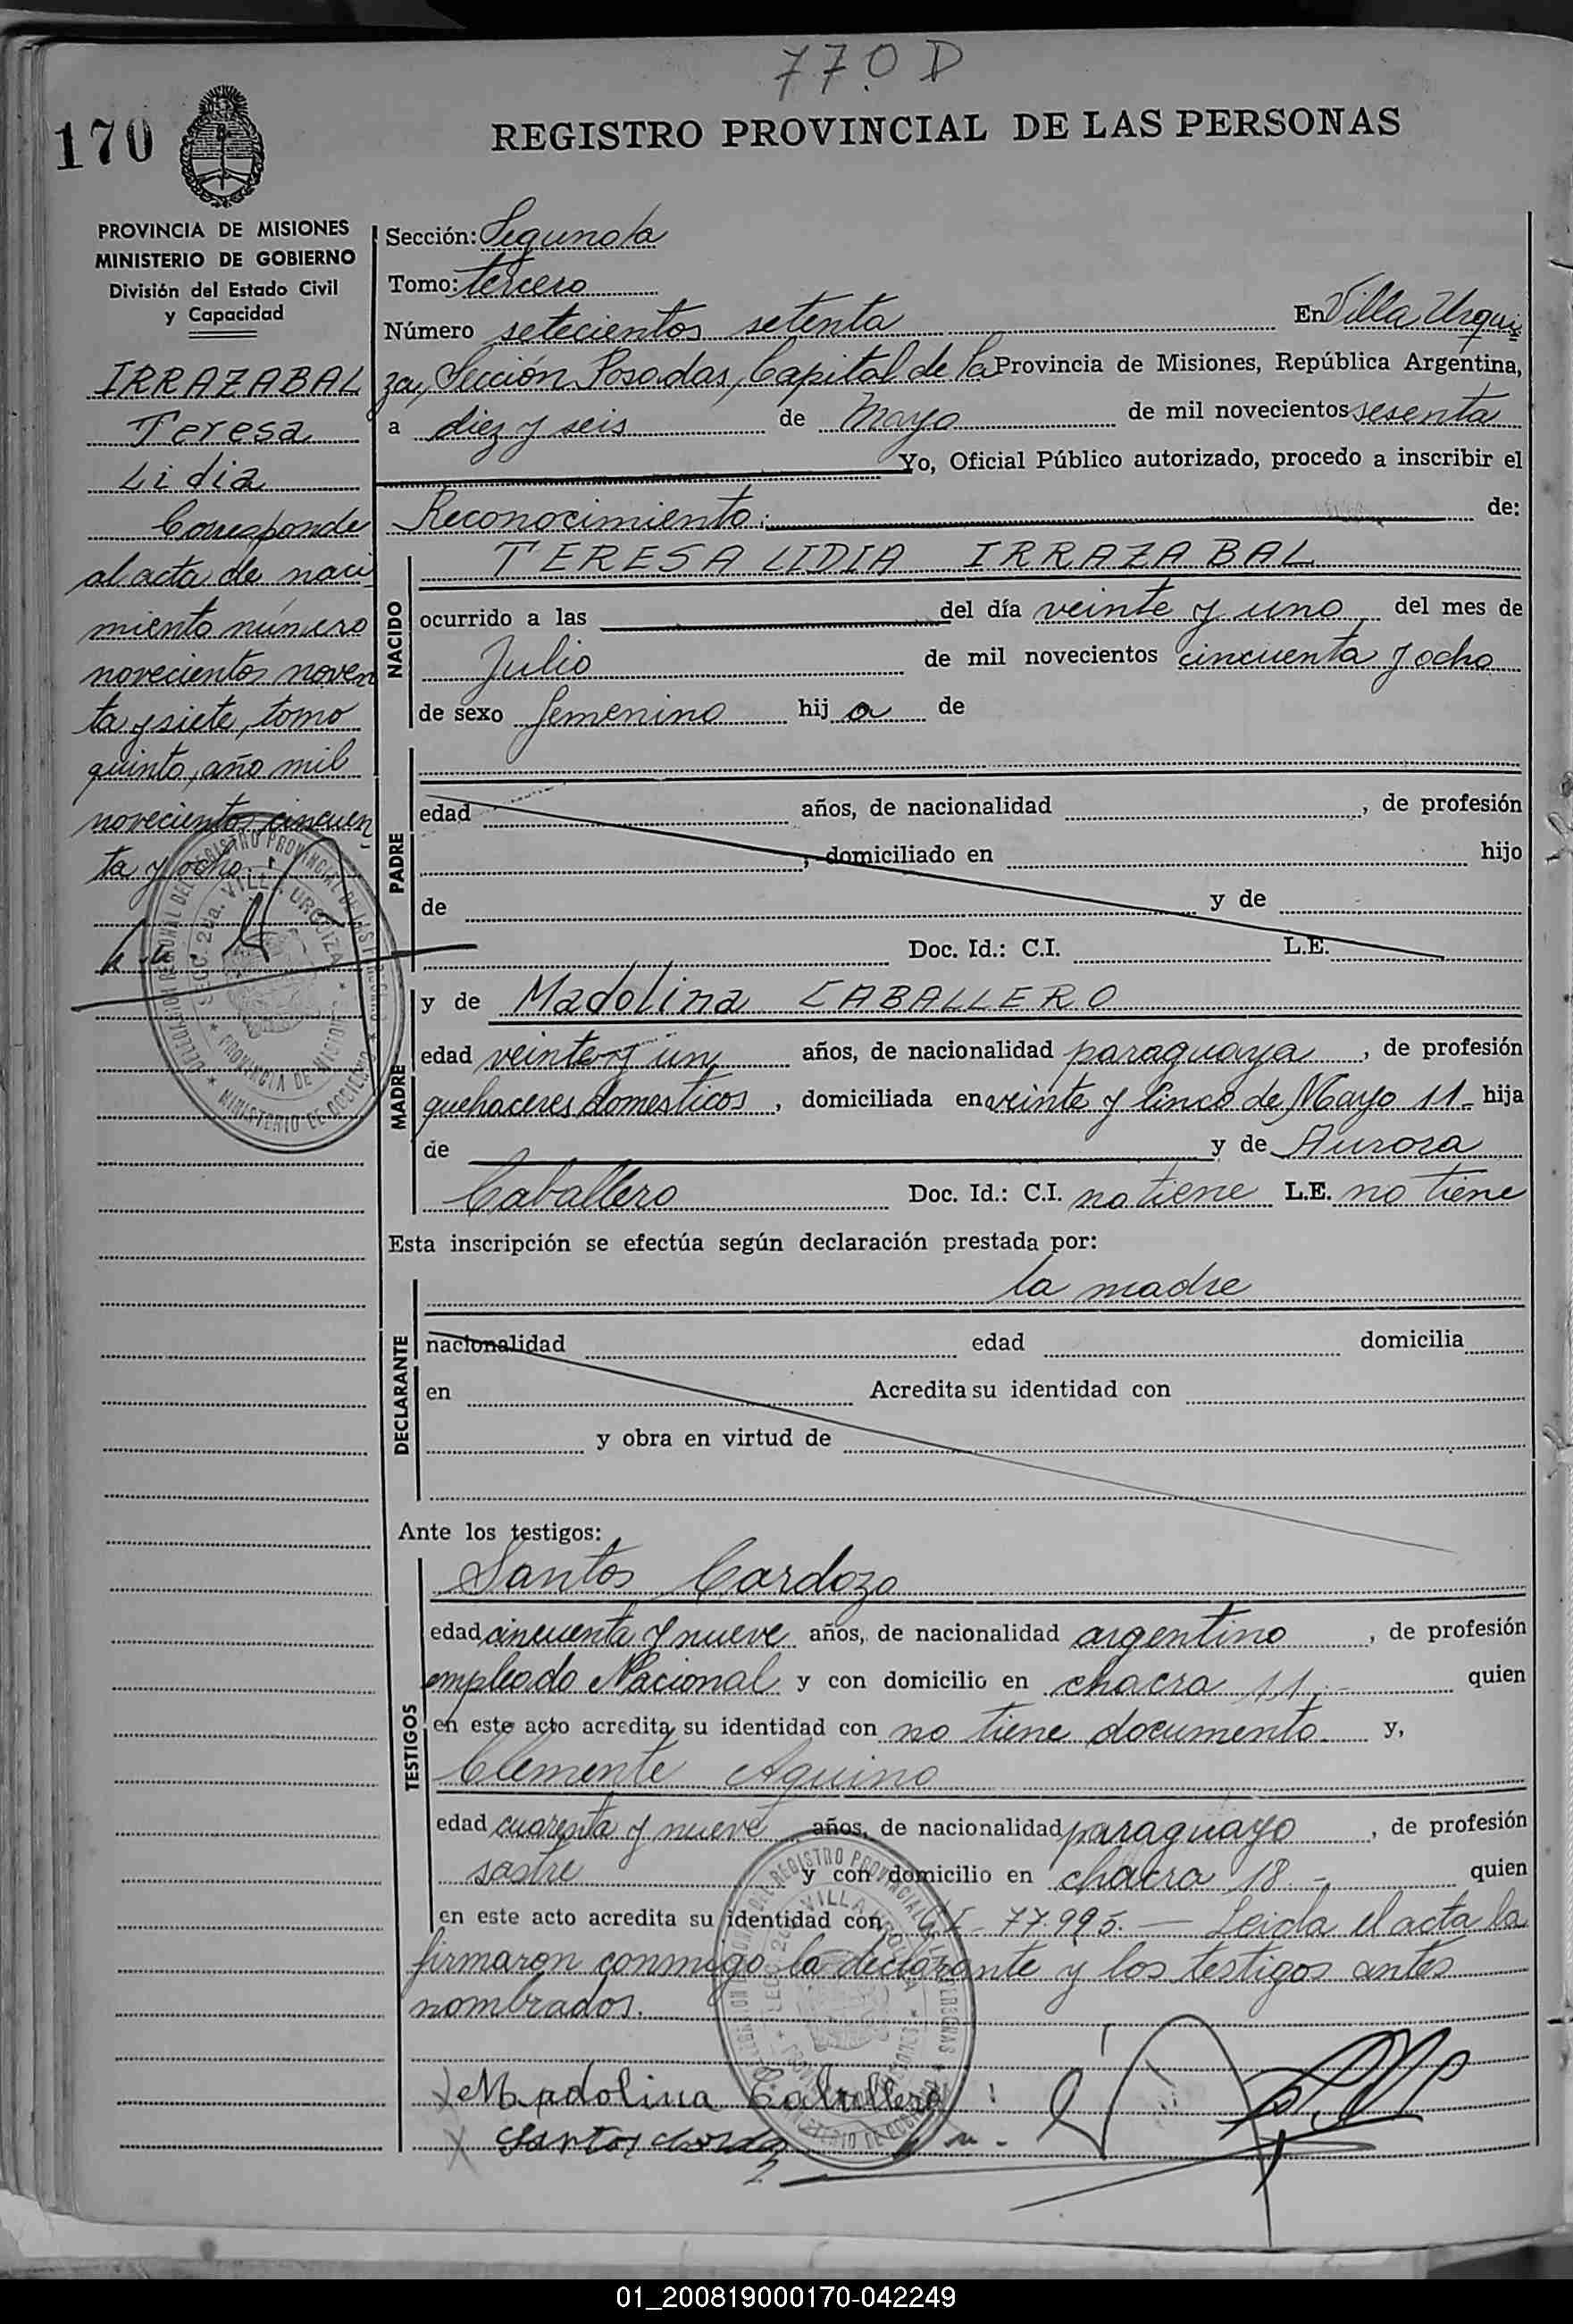 770 D
170
REGISTRO PROVINCIAL DE LAS PERSONAS
PROVINCIA DE MISIONES
MINISTERIO DE GOBIERNO
División del Estado Civil
y Capacidad
IRRAZABAL
Teresa
Lidia
Corresponde
al acta de naci
miento número
novecientos noven
ta y siete, tomo
quinto, año mil
novecientos cincuen
ta y ocho.
Sección: Segunda
Tomo: tercero
Número setecientos setenta En Villa Urqui
za, Sección Posadas, Capital de la Provincia de Misiones, República Argentina,
a diez y seis de Mayo de mil novecientos sesenta
Yo, Oficial Público autorizado, procedo a inscribir el
Reconocimiento: de:
NACIDO
TERESA LIDIA IRRAZABAL
ocurrido a las del día veinte y uno del mes de
Julio de mil novecientos cincuenta y ocho
de sexo femenino hij a de
PADRE
edad años, de nacionalidad , de profesión
, domiciliado en hijo
de y de
Doc. Id.: C.I. L.E.
MADRE
y de Madolina CABALLERO
edad veinte y un años, de nacionalidad paraguaya , de profesión
quehaceres domesticos , domiciliada en veinte y Cinco de Mayo 11 - hija
de y de Aurora
Caballero Doc. Id.: C.I. no tiene L.E. no tiene
Esta inscripción se efectúa según declaración prestada por:
DECLARANTE
la madre
nacionalidad edad domicilia
en Acredita su identidad con
y obra en virtud de
Ante los testigos:
TESTIGOS
Santos Cardozo
edad cincuenta y nueve años, de nacionalidad argentino , de profesión
empleado Nacional y con domicilio en chacra 11 - quien
en este acto acredita su identidad con no tiene documento. y,
Clemente Aquino
edad cuarenta y nueve años, de nacionalidad paraguayo , de profesión
sastre y con domicilio en chacra 18 - quien
en este acto acredita su identidad con C.I. 77.995. — Leida el acta la
firmaron conmigo la declarante y los testigos antes
nombrados.
Madolina Caballero
Santos
01_200819000170-042249